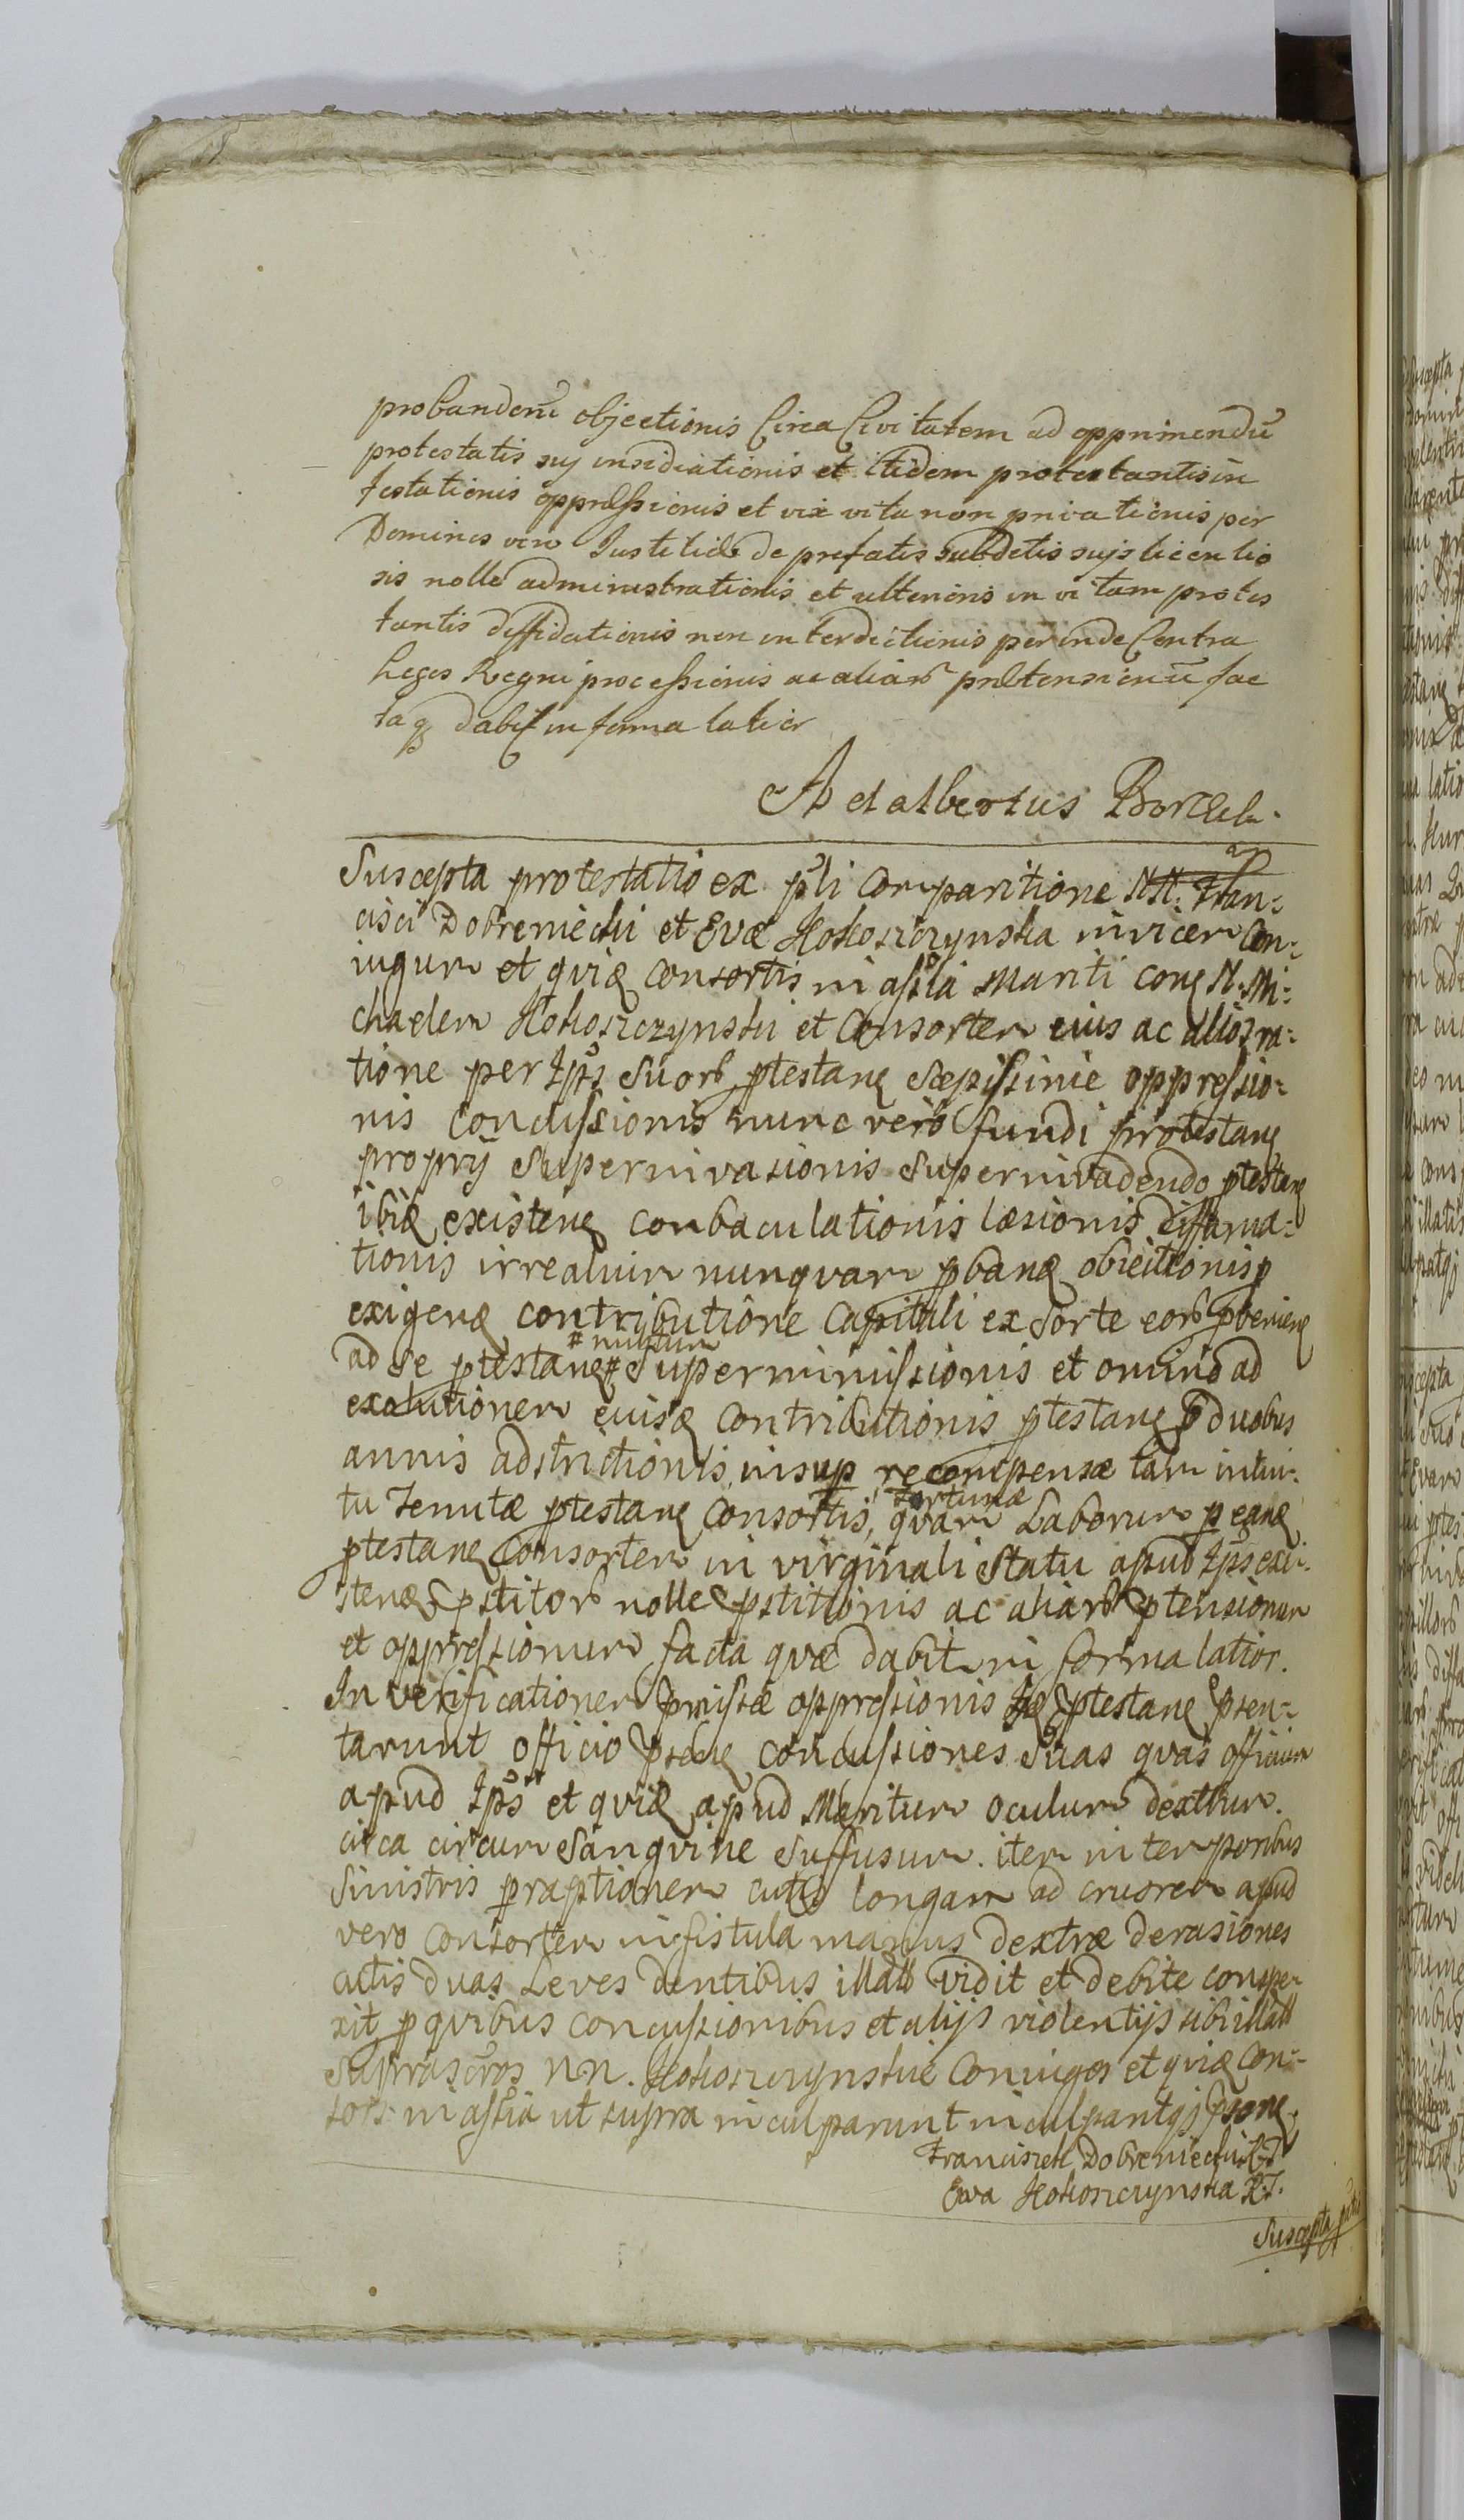 probandarũ objectionis Circa Civitatem ad opprimendũ
protestatis suj insidiationis et itidem protestantis in
festationis oppressionis et vix vita non privationis per
Dominos vero Iustitiæ de prefatis subdctis sujs licentio
sis nolle administrationis et ulterioris in vitam protes
tantis diffidationis non interdictionis perinde Contra
Leges Regni processionis ac aliarũ prætensionũ fac
ta q dabit in forma latior
Adalbertus
Suscepta protestatio ex pli comparitione NN. Fran:
cisci Dobreniecki et Evæ Hohoszczynska invicem Con:
iugum et quidẽ consortis in assia Mariti coñ N. Mi:
chaelem Hohoszczynski et Consortem eius ac alios ra:
tione per Ips suorũ ptestanẽ sæpissimè oppressio:
nis concussionis nunc verò fundi protestanẽ
proprij superinvasionis superinvadendo ptestanẽ
ibidẽ existenẽ conbaculationis læsionis diffama:
tionis irrealium nunquam pbandẽ obiectionis p
exigendẽ contributione Capitali ex sorte eorũ pveniene
# nuntium
ad se ptestanẽ # superimmissionis et omnino ad
exolutionem eiusdẽ contributionis ptestanẽ p duobus
annis adstrictionis, insup recompensæ tam intui:
fortunæ
tu Tenutæ ptestanẽ consortis, quam Laborum p eandẽ
ptestanẽ Consortem in virginali Statu apud Ips exi:
stendẽ pstitorũ nolle pstitionis ac aliarũ ptensionum
et oppressionum facta quæ dabit in forma latior.
In verificationem pmissæ oppressionis ptestanẽ psen:
tarunt officio psenẽ concussiones suas quas officium
apud Ips et quidẽ apud Maritum oculum dextrum
circa circum sanguine suffusum. item in temporibus
sinistris praptionem cutis longam ad cruorem apud
vero Consortem in fistula manus dextræ derasiones
cutis duas leves dentibus illatas vidit et debite conspe
xit, p quibus concussionibus et alijs violentijs sibi illatis
suprascros NN. Hohoszczynskie Coniuges et quidẽ Con:
sors in assia ut supra inculparunt inculpantq psenẽ.
Franciszek Dobreniecki
Ewa Hohoszczynska
Suscepta